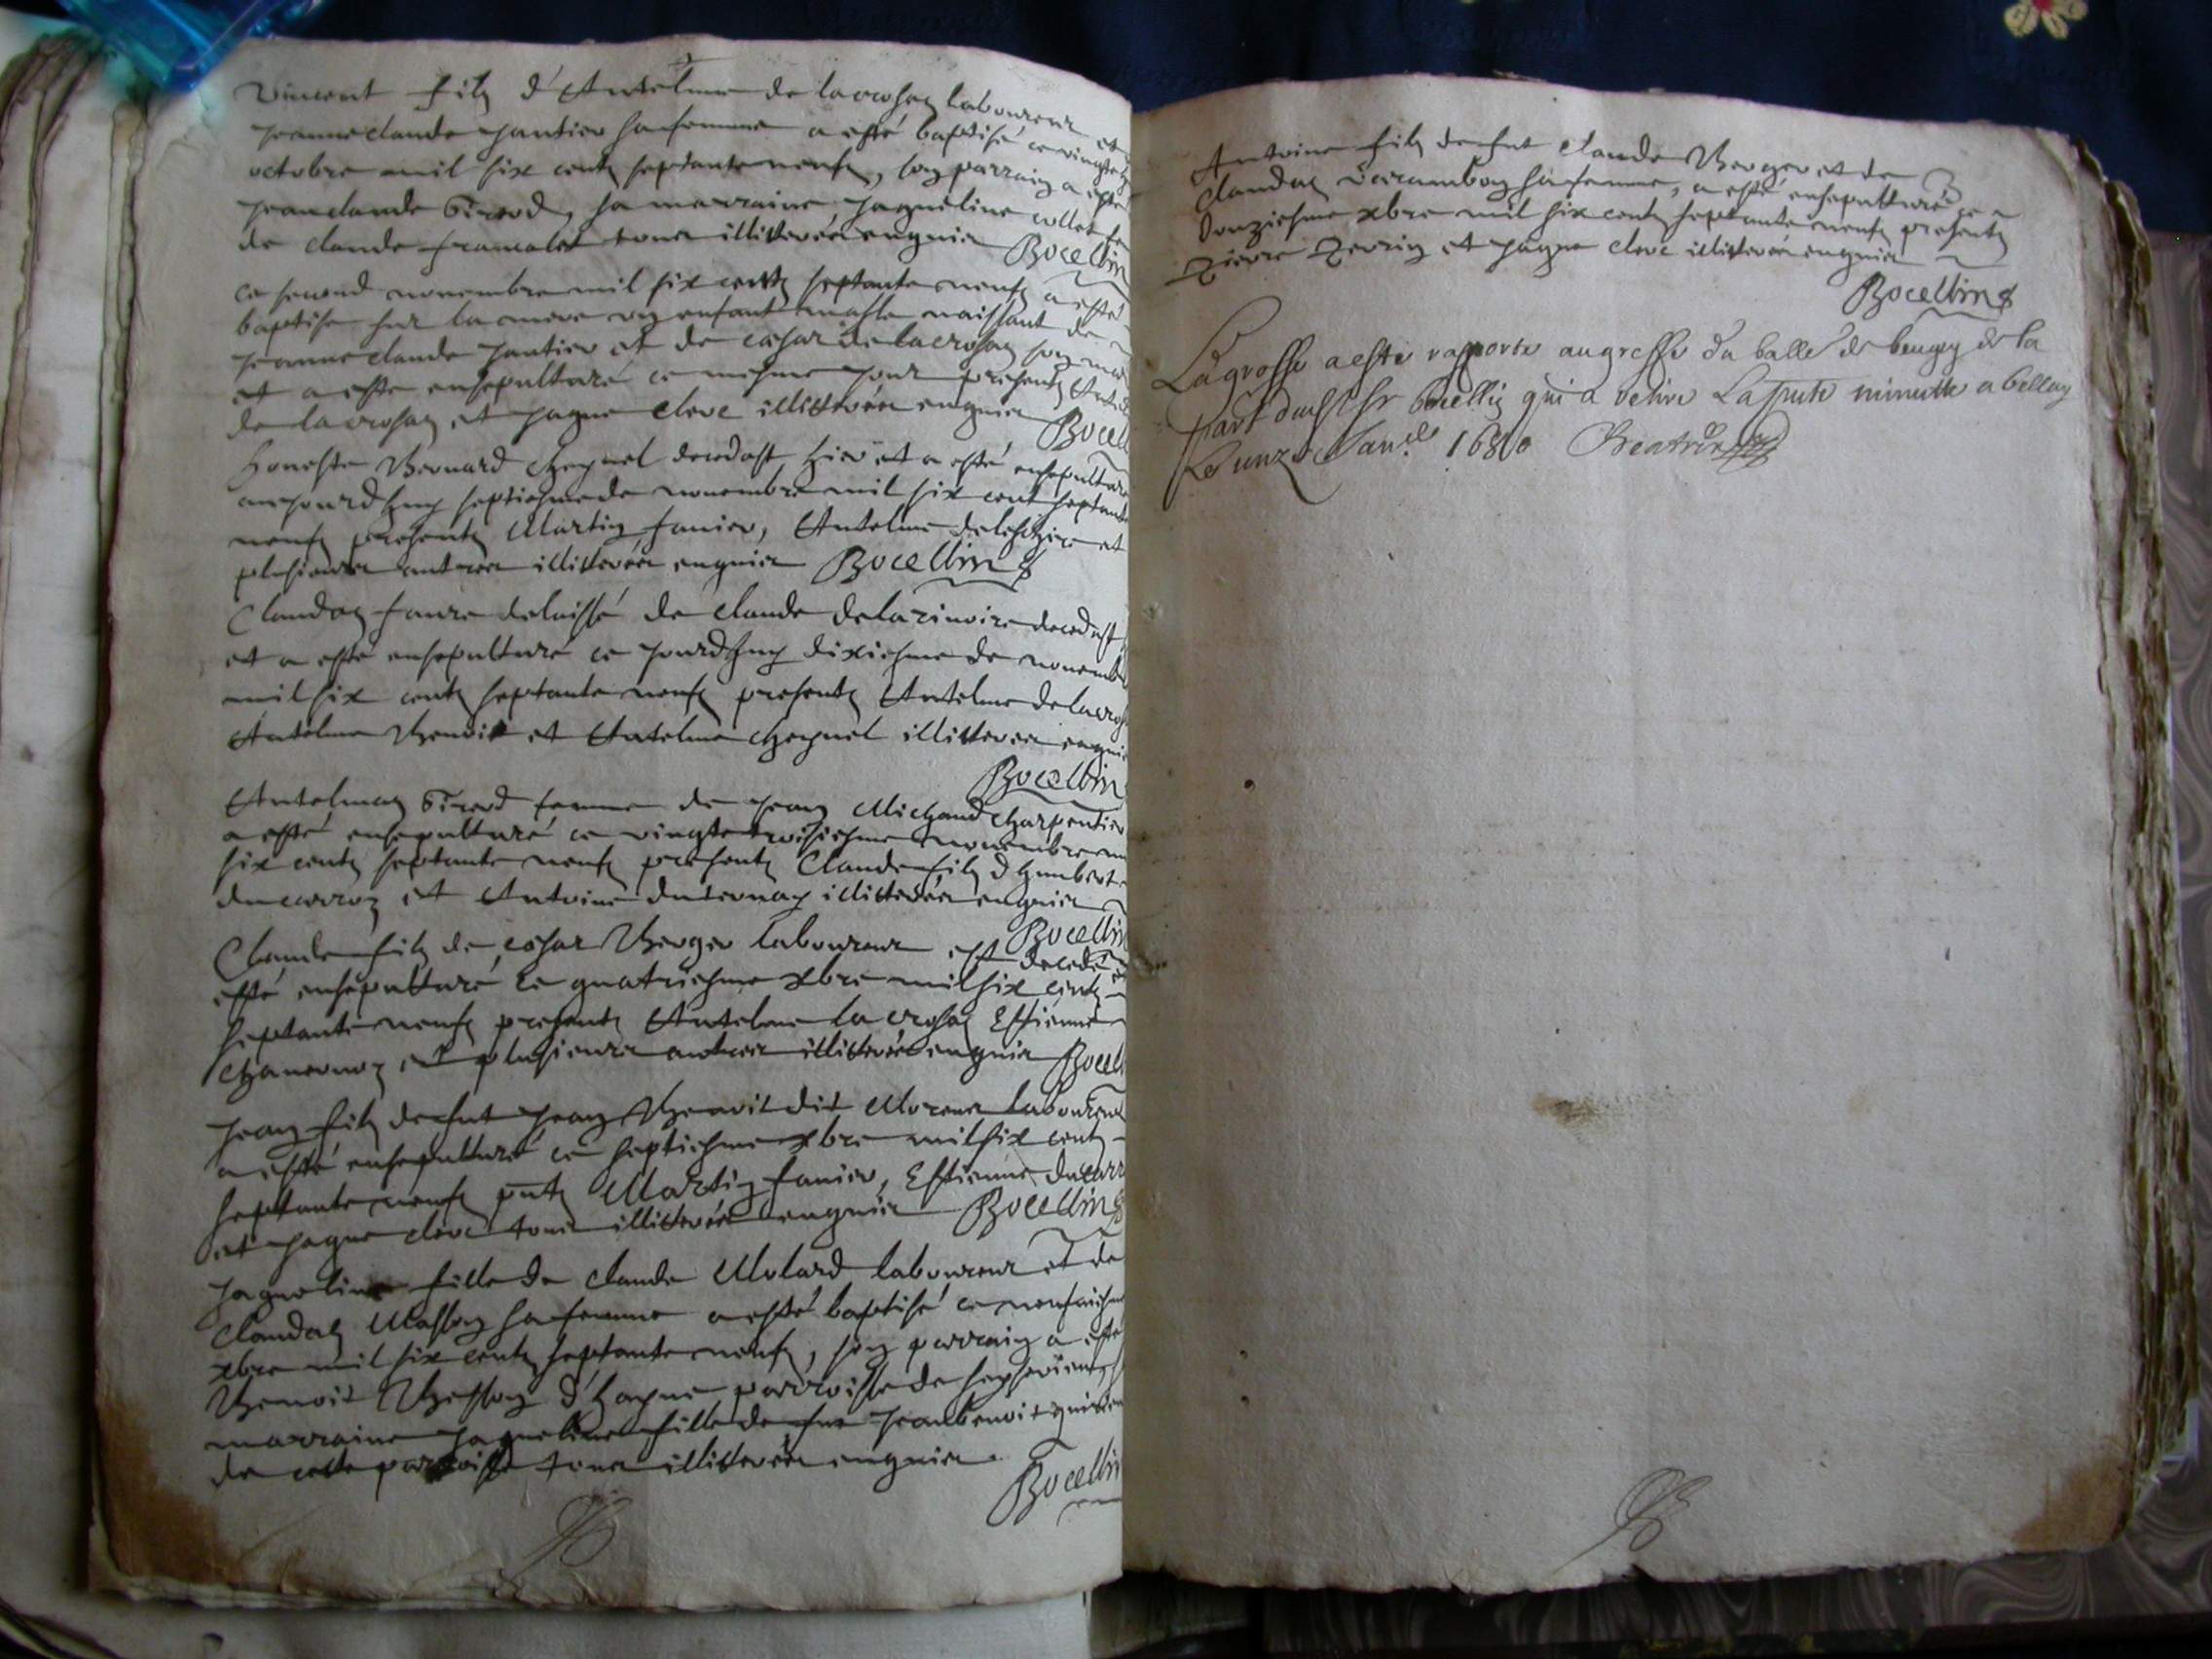 Vincent filz d'Antelme de lacrosaz laboureur et
Jeanne claude pantier sa femme a esté baptisé ce vingt
octobre mil six centz septante neufz, son parrain a esté
Jean claude Girod, sa marraine Jaqueline collet fe
de claude francalet tous illitterés enquis Bocellin
ce second novembre mil six centz septante neufz a esté
baptisé sur la mere un enfant masle naissant de
Jeanne claude pantier et de cesar de lacrosaz son ma
et a esté ensepulturé ce mesme jour presentz Antel
de lacrosaz et Jaque clerc illitterés enquis Bocell
honeste Bernard cheynel decedast hier et a esté ensepulturé
aujourdhuy septiesme de novembre mil six cent septante
neufz presentz Martin fanier, Antelme et
plusieurs autres illitterés enquis Bocellin
Claudaz faure delaissé de claude decedast
et a esté ensepulturé ce jourdhuy dixiesme de novemb
mil six centz septante neufz presentz Antelme de lacros
Antelme Benoit et Antelme cheynel illitterés enquis
Bocellin
Antelmaz Girod femme de Jean Michaud charpentier
a esté ensepulturé ce vingt troisiesme novembre mi
six centz septante neufz presentz Claude filz d'humbert
ducarroz et Antoine duternay illitterés enquis
Bocellin
Claude filz de cesar Berger laboureur est decedé et
esté ensepulturé ce quatriesme xbre mil six centz
septante neufz presentz Antelme lacrosaz Estienne
et plusieurs autres illitterés enquis Bocell
Jean filz de fut Jean Benoit dit laboureur
a esté ensepulturé ce septiesme xbre mil six centz
septante neufz pntz Martin fanier, Estienne ducarr
et Jaque clerc tous illitterés enquis Bocellin
Jaqueline fille de claude Molard laboureur et de
claudaz Masson sa femme a esté baptisé ce neufviesme
xbre mil six centz septante neufz, son parrain a esté
Benoit Besson parroisse de
marraine Jaqueline fille de fut Jean benoit
de cette parroisse tous illitterés enquis
Bocellin
Antoine filz de fut claude Berger et de
claudaz sa femme, a esté ensepulturé ce
xbre mil six centz septante neufz presentz
pierre perrin et Jaque clerc illitterés enquis
Bocellin
La grosse a esté rapporté au greffe du balle de beugey de la
part dudit Sr Bocellin qui a retiré La pnte minutte a bellay
Le unze Janv. 1680